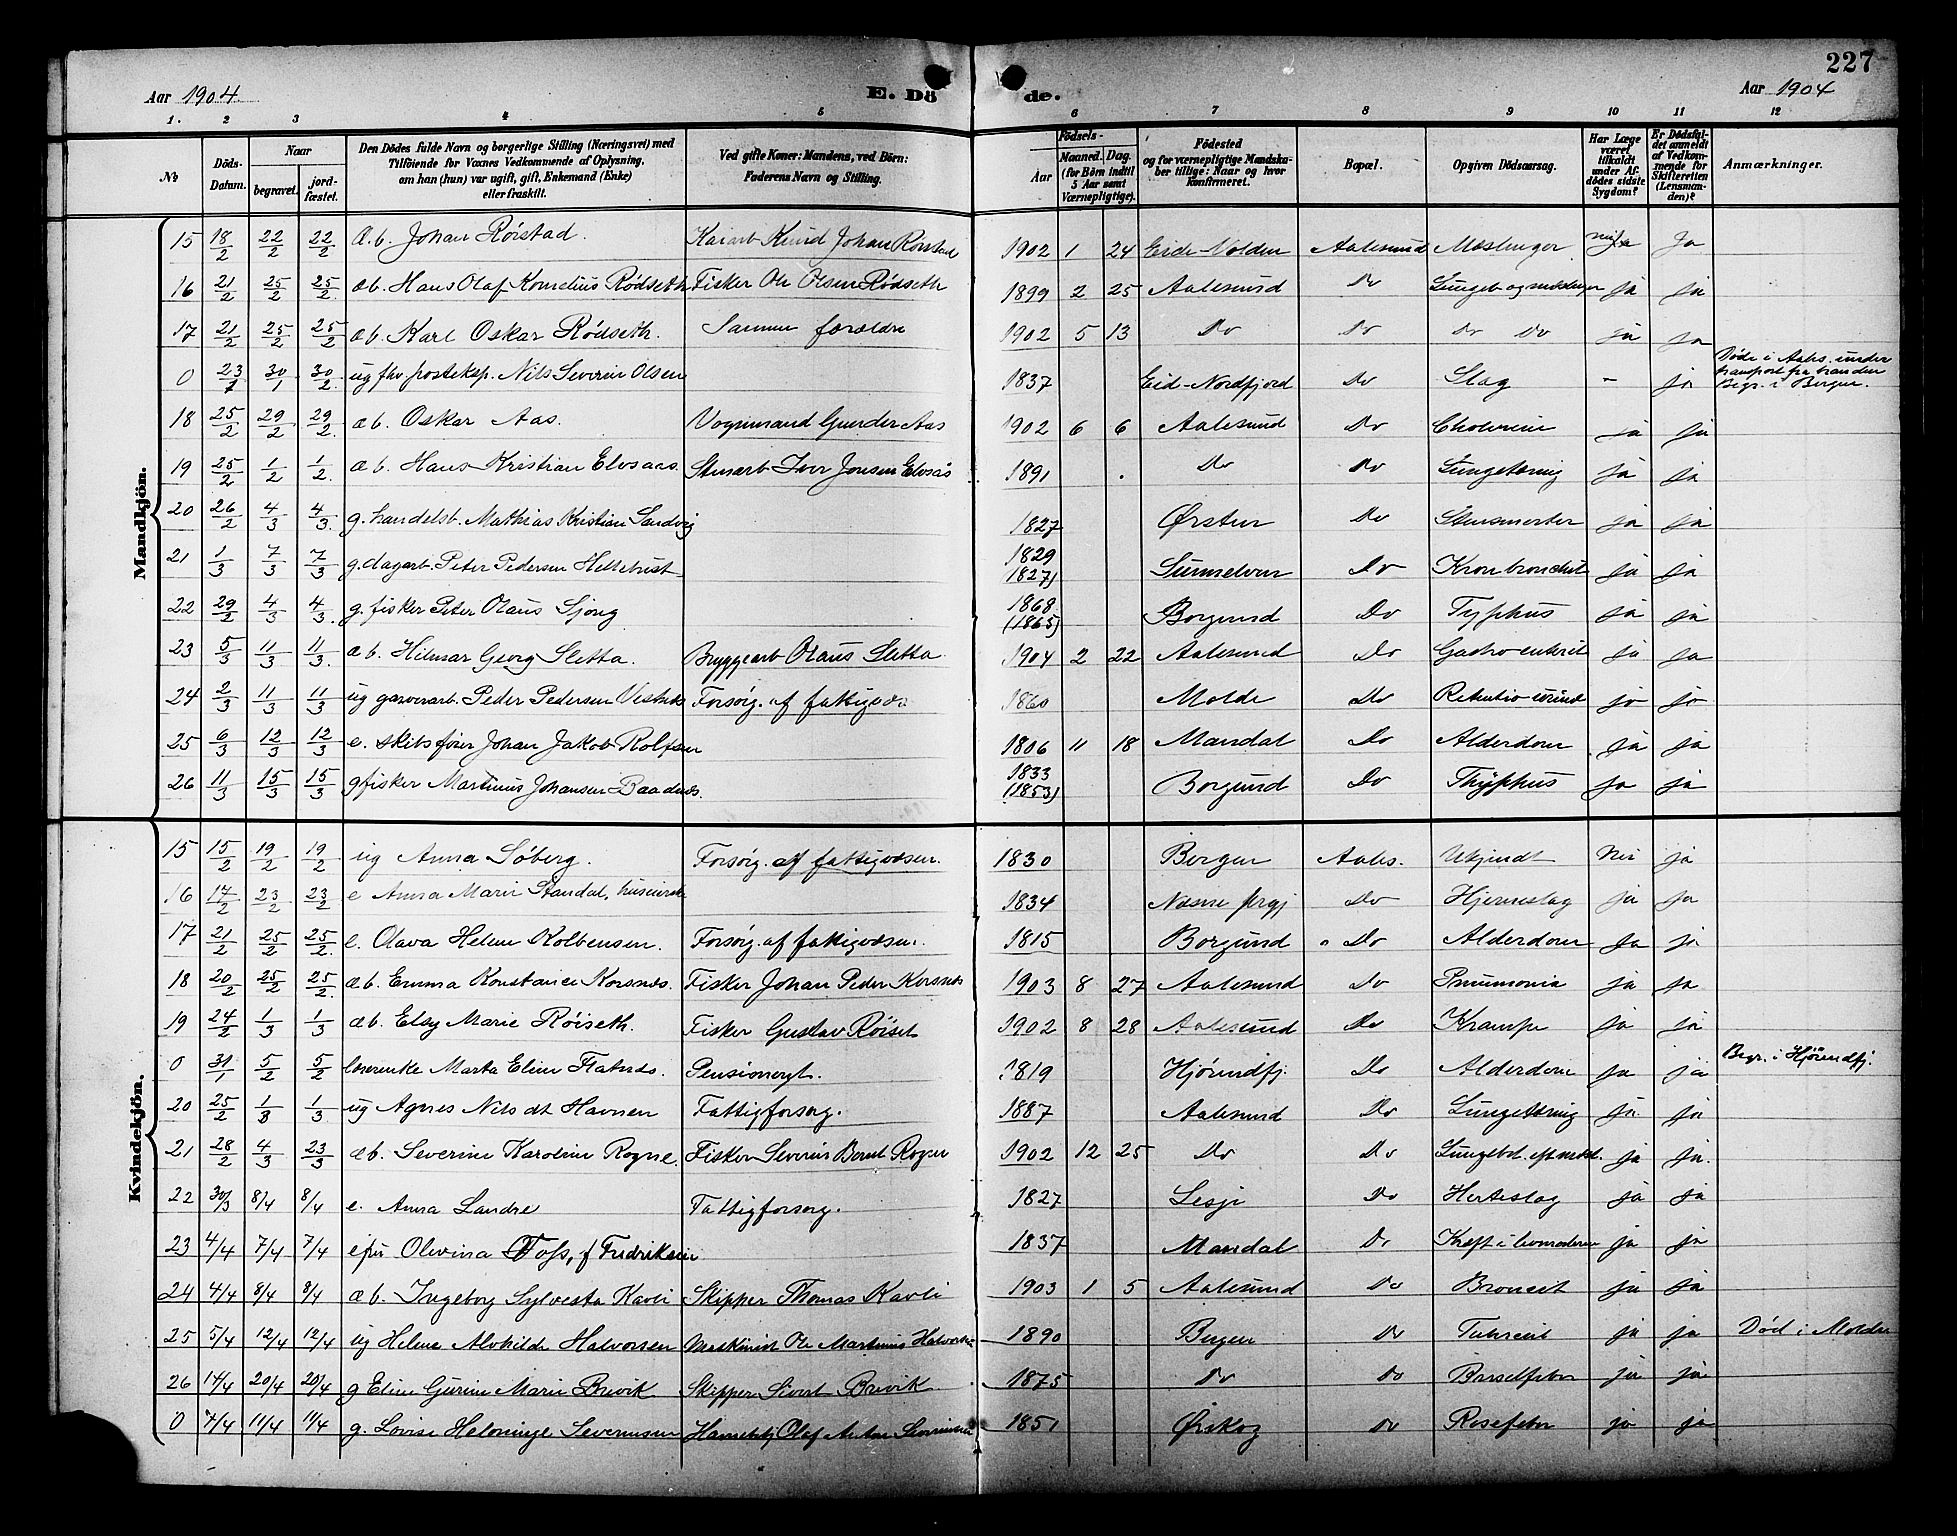 227
Aar 1904. E. Döde. Aar 1904
1. 2 3 4 5 6 7 8 9 10 11 12
№ Döds-Datum. Naar begravet. jord-fæstet. Den Dödes fulde Navn og borgerlige Stilling (Næringsvei) med Tilföiende for Voxnes Vedkommende af Oplysning, om han (hun) var ugift, gift, Enkemand (Enke) eller fraskilt. Ved gifte Koner: Mandens, ved Börn: Faderens Navn og Stilling. Födsels- Aar Maaned. Dag. (for Börn indtil 5 Aar samt Værnepligtige). Födested og for værnepligtige Mandskaber tillige: Naar og hvor konfirmeret. Bopæl. Opgiven Dödsaarsag. Har Læge været tilkaldt under Afdödes sidste Sygdom? Er Dödsfaldet anmeldt af Vedkommende for Skifteretten (Lensmanden)? Anmærkninger.
Mandkjön.
15 18/2 22/2 22/2 æ.b. Johan Röistad. Kaiarb Knud Johan Röistad 1902 1 24 Eid-Volden Aalesund Mæslinger Ja
16 21/2 25/2 25/2 æb. Hans Olaf Kornelius Rödseth Fisker Ole Olsen Rødseth 1899 2 25 Aalesund Do Lungeb og mæslinger ja ja
17 21/2 25/2 25/2 æb. Karl Oskar Rödseth. Samme forældre 1902 5 13 Do Do Do Do ja ja
0 23/1 30/1 30/2 ug fhv posteksp. Nils Severin Olsen 1837 Eid-Nordfjord Do Slag - ja Døde i Aales. under transport fra branden Begr. i Bergen.
18 25/2 29/2 29/2 æb. Oskar Aas. Vognmand Gunder Aas 1902 6 6 Aalesund Do Cholerine ja ja
19 25/2 1/2 1/2 æb. Hans Kristian Elvsaas. Stenarb Iver Jonsen Elvsås 1891 Do Do Lungetæring ja ja
20 26/2 4/3 4/3 g. handelsb. Mathias Kristian Sandvig 1827 Ørsten Do Stensmerter ja ja
21 1/3 7/3 7/3 g. dagarb. Peter Pedersen Hellebust 1829 1827) Sunnelven Do Kron bronchit ja ja
22 29/2 4/3 4/3 g. fisker Peter Olaus Sjong 1868 (1865) Borgund Do Typhus ja ja
23 5/3 11/3 11/3 æb. Hilmar Georg Sletta. Bryggearb Olaus Sletta 1904 2 22 Aalesund Do Gastro enterit ja ja
24 2/3 11/3 11/3 ug garverarb. Peder Pedersen Vestnes Forsörg. af fattigvæs. 1860 Molde Do Retentio urind ja ja
25 6/3 12/3 12/3 e. skibsfører Johan Jakob Rolfsen 1806 11 18 Mandal Do Alderdom ja ja
26 11/3 15/3 15/3 g fisker Martinus Johansen Baadnes. 1833 (1853) Borgund Do Thyphus ja ja
Kvindekjön.
15 15/2 19/2 19/2 ug Anna Söberg. Forsörg. af fattigvæsen. 1830 Bergen Aales. Ukjendt Nei ja
16 17/2 23/2 23/2 e Anna Marie Standal, 1834 Næsse prgj Do Hjerneslag ja ja
17 21/2 25/2 25/2 e. Olava Helene Kolbensen. Forsörg. af fattigvæsen. 1815 Borgund Do Alderdom Ja ja
18 20/2 25/2 25/2 æb. Emma Konstance Korsnes. Fisker Johan Peder Korsnes 1903 8 27 Aalesund Do Pneumonia ja ja
19 24/2 1/3 1/3 æb. Elsy Marie Röiseth. Fisker Gustav Röiset 1902 8 28 Aalesund Do Krampe ja ja
0 31/1 5/2 5/2 lærerenke Marta Eline Flatnes. Pensioneret. 1819 Hjörundfj. Do Alderdom ja ja Begr. i Hjörundfj.
20 25/2 1/3 1/3 ug Agnes Nilsdt Havnen Fattigforsörg. 1887 Aalesund Do Lungetæring ja ja
21 28/2 4/3 23/3 æb. Severine Karoline Rogne. Fisker Severin Bernt Rogne 1902 12 25 Do Do ja ja.
22 30/3 8/4 8/4 e. Anna Landre Fattigforsörg. 1827 Lesje Do Herteslag ja ja
23 4/4 7/4 7/4 Olevina Foss, f Fredriksen 1837 Mandal Do Kræft i livmoderen ja ja
24 4/4 8/4 8/4 æb. Ingeborg Sylvesta Kavli Skipper Thomas Kavli 1903 1 5 Aalesund Do Broncit ja ja
25 5/4 12/4 12/4 ug Helene Alvhilde Halvorsen Maskinist Ole Martinius Halvorsen 1890 Bergen Do ja ja Död i Molde
26 14/4 20/4 20/4 g Eline Gurine Marie Brevik Skipper Sivert Brevik 1875 Do Do Barselfeber ja ja
0 7/4 11/4 11/4 g. Lovise Severinsen Olaf Anton Severinsen 1851 Ørskog Do Rosefeber ja ja